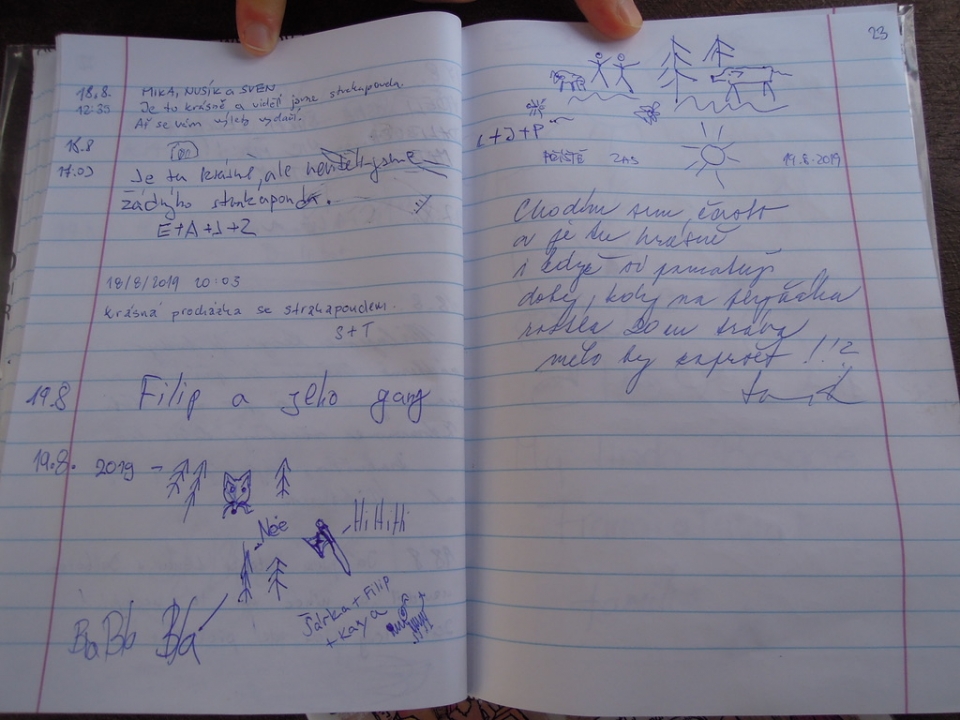 18.8. MIKA, NUSÍK a SVEN
12:35 Je tu krásně a viděli jsme strakapouda.
Ať se vám výlety vydaří.
18.8
17:03 Je tu krásně, ale neviděli jsme
žádnýho strakapouda.
E+A+J+Z
18/8/2019 20:03
krásná procházka se strakapoudem.
S+T
19.8 Filip a jeho gang
19.8. 2019 -
Née
HiHiHi
BaBb Bla
Šárka + Filip
+ Kaya
23
L+J+P
PŘÍŠTĚ ZAS 19.8.2019
Chodím sem často
a je tu krásně
i když si pamatuji
doby, kdy na
rostla tráva
mělo by zapršet !!!